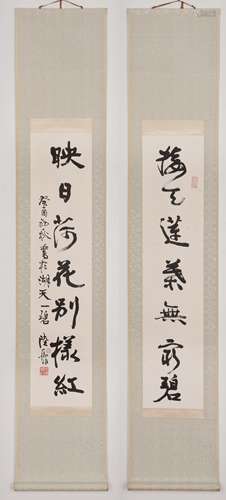 接天蓮葉無窮碧
映日荷花別樣紅
癸酉初秋書於湖天一碧